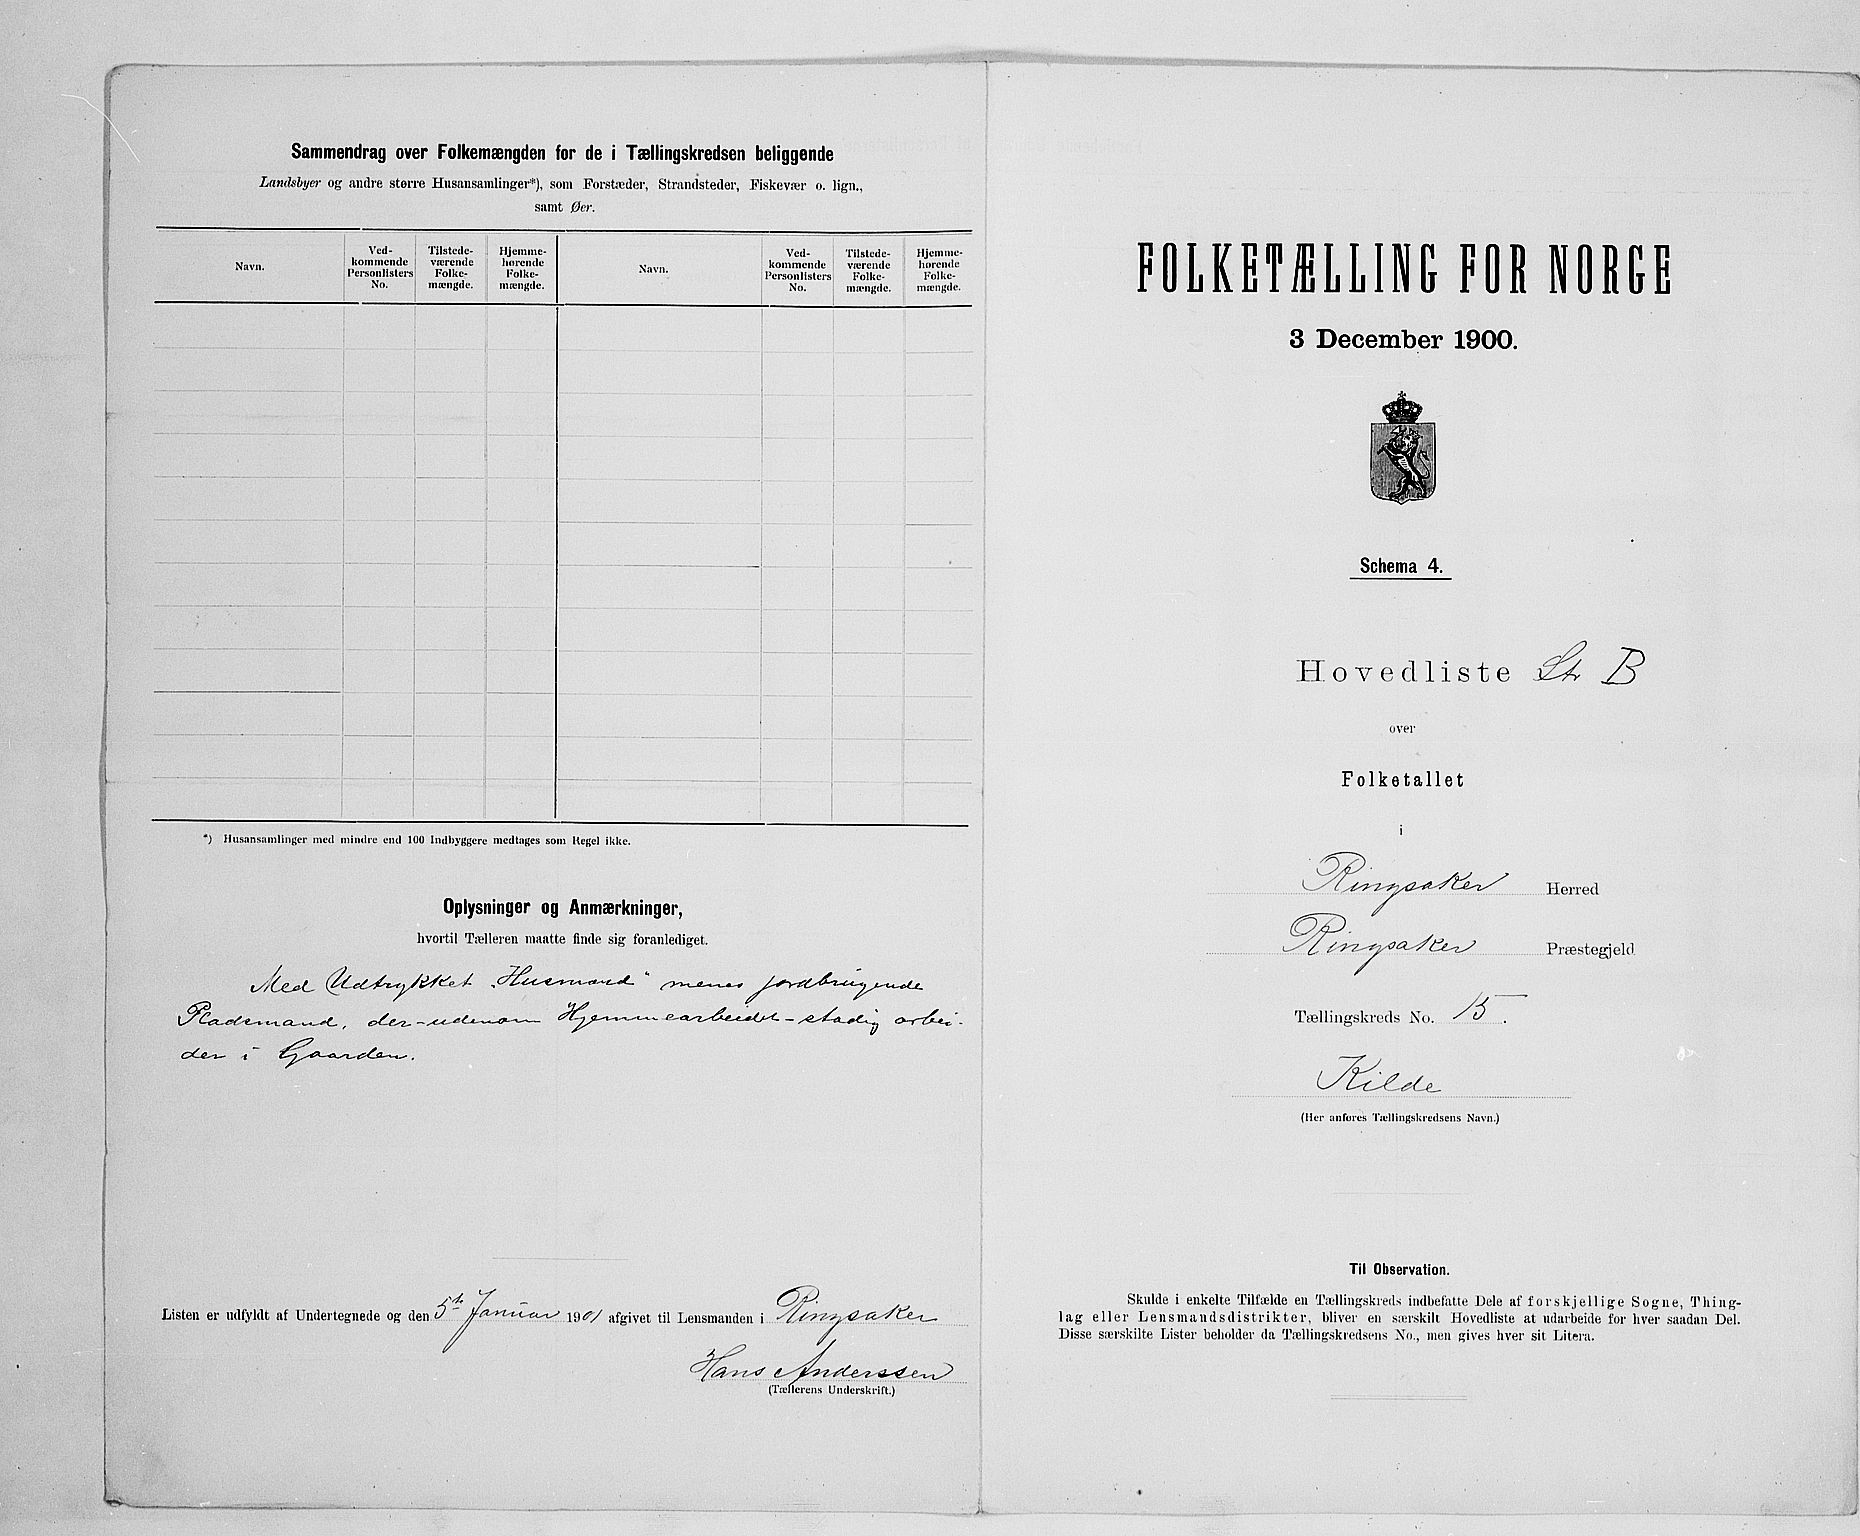 Sammendrag over Folkemængden for de i Tællingskredsen beliggende
Landsbyer og andre større Husansamlinger*), som Forstæder, Strandsteder, Fiskevær o. lign.,
samt Øer.
Navn.
Ved-
kommende
Personlisters
No.
Tilstede-
værende
Folke-
mængde.
Hjemme-
hørende
Folke-
mængde.
Navn.
Ved-
kommende
Personlisters
No.
Tilstede-
værende
Folke-
mængde.
Hjemme-
hørende
Folke-
mængde.
*) Husansamlinger med mindre end 100 Indbyggere medtages som Regel ikke.
Oplysninger og Anmærkninger,
hvortil Tælleren maatte finde sig foranlediget.
Med Udtrykket „Husmand“ menes jordbrugende
Pladsmand, der-udenom Hjemmearbeidet-stadig arbei-
der i Gaarden.
Listen er udfyldt af Undertegnede og den 5te Januar 1901 afgivet til Lensmanden i Ringsaker
Hans Anderssen
(Tællerens Underskrift.)
FOLKETÆLLING FOR NORGE
3 December 1900.
Schema 4.
Hovedliste Ltr B
over
Folketallet
i
Ringsaker Herred
Ringsaker Præstegjeld
Tællingskreds No. 15.
Kilde
(Her anføres Tællingskredsens Navn.)
Til Observation.
Skulde i enkelte Tilfælde en Tællingskreds indbefatte Dele af forskjellige Sogne, Thing-
lag eller Lensmandsdistrikter, bliver en særskilt Hovedliste at udarbeide for hver saadan Del.
Disse særskilte Lister beholder da Tællingskredsens No., men gives hver sit Litera.